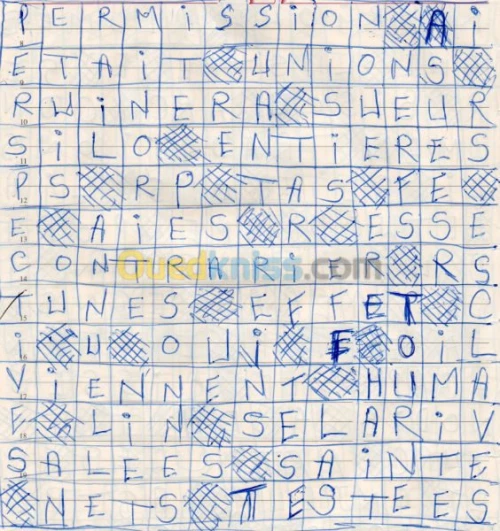 PERMiSSiON Ai
ETAiT UNIONS
RUiNERA SUEUR
SiLO ENTIERES
PS RP TAS FE
E AiES R ESSE
CONTRARiER RS
Ouedkniss.com
TUNES EFFET C
i U OUi F OiL
ViENNENT HUMA
E LiN SELARiV
SALEES SAiNTE
NETS TESTEES